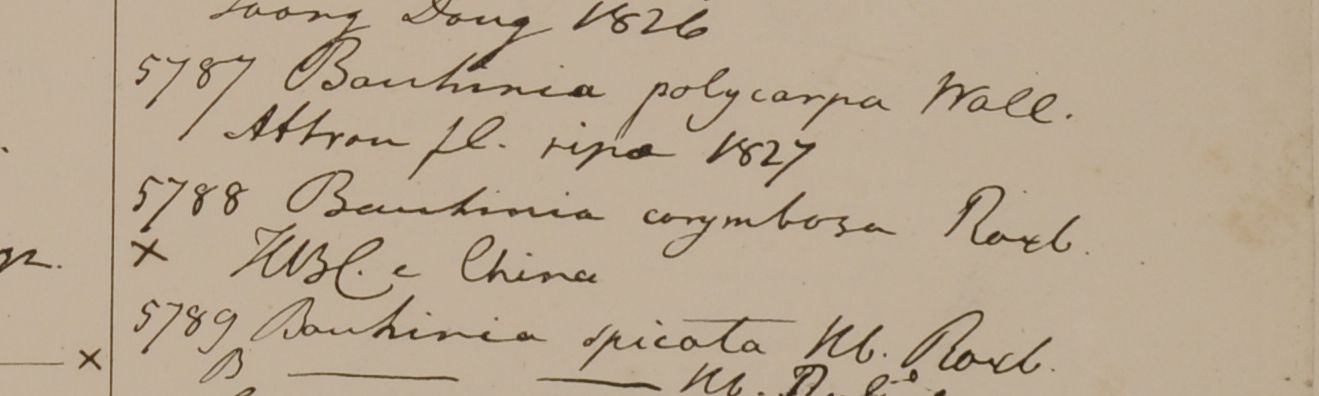 Toong Doug 1826
5787 Bauhinia polycarpa Wall.
Attran fl. ripa 1827
5788 Bauhinia corymbosa Roxb.
× HBC. e China
5789 Bauhinia spicata Hb. Roxb.
B —— —— Hb.